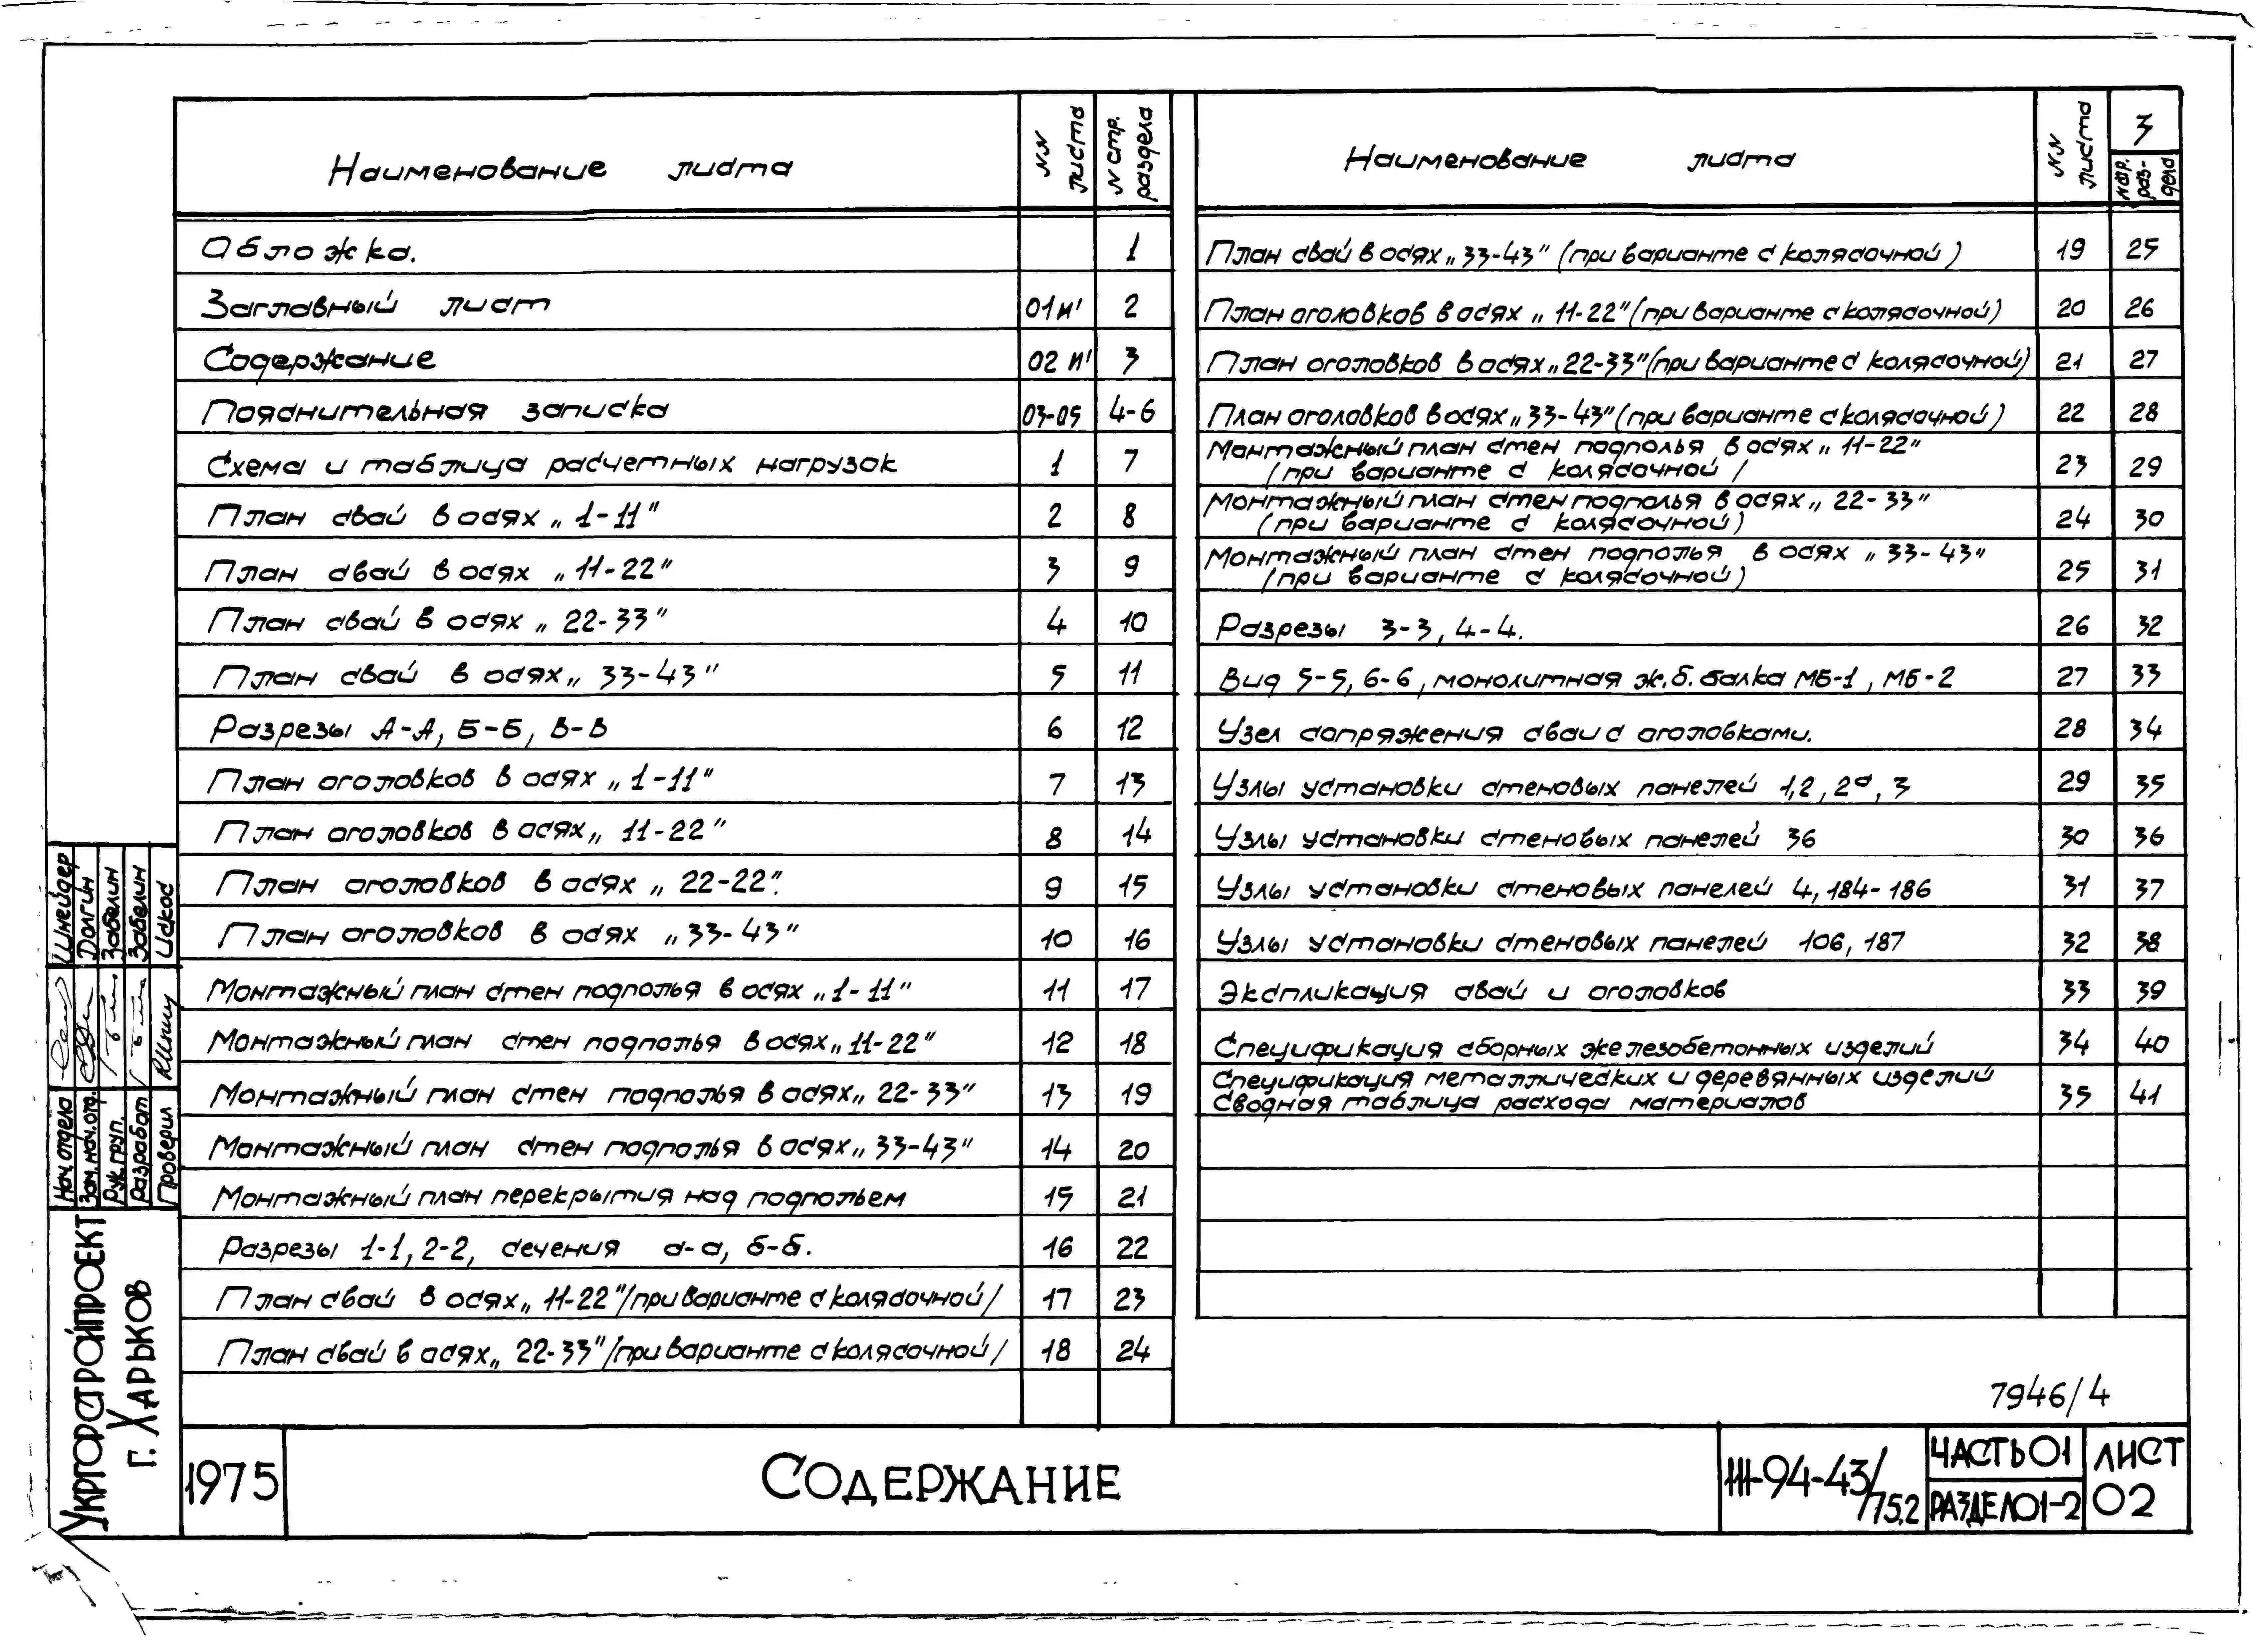 Наименование листа
NN листа
N стр. раздела
Обложка. 1
Заглавный лист 01и' 2
Содержание 02 и' 3
Пояснительная записка 03-05 4-6
Схема и таблица расчетных нагрузок 1 7
План свай в осях „1-11" 2 8
План свай в осях „11-22" 3 9
План свай в осях „22-33" 4 10
План свай в осях „33-43" 5 11
Разрезы А-А, Б-Б, В-В 6 12
План оголовков в осях „1-11" 7 13
План оголовков в осях „11-22" 8 14
План оголовков в осях „22-22". 9 15
План оголовков в осях „33-43" 10 16
Монтажный план стен подполья в осях „1-11" 11 17
Монтажный план стен подполья в осях „11-22" 12 18
Монтажный план стен подполья в осях „22-33" 13 19
Монтажный план стен подполья в осях „33-43" 14 20
Монтажный план перекрытия над подпольем 15 21
Разрезы 1-1, 2-2, сечения а-а, б-б. 16 22
План свай в осях „11-22" /при варианте с колясочной/ 17 23
План свай в осях „22-33" /при варианте с колясочной/ 18 24
Наименование листа
NN листа
3
раз-
дела
План свай в осях „33-43" (при варианте с колясочной) 19 25
План оголовков в осях „11-22" (при варианте с колясочной) 20 26
План оголовков в осях „22-33" (при варианте с колясочной) 21 27
План оголовков в осях „33-43" (при варианте с колясочной) 22 28
Монтажный план стен подполья в осях „11-22"
(при варианте с колясочной / 23 29
Монтажный план стен подполья в осях „22-33"
(при варианте с колясочной) 24 30
Монтажный план стен подполья в осях „33-43"
(при варианте с колясочной) 25 31
Разрезы 3-3, 4-4. 26 32
Вид 5-5, 6-6, монолитная ж.б. балка МБ-1, МБ-2 27 33
Узел сопряжения сваи с оголовками. 28 34
Узлы установки стеновых панелей 1,2, 2а, 3 29 35
Узлы установки стеновых панелей 36 30 36
Узлы установки стеновых панелей 4, 184-186 31 37
Узлы установки стеновых панелей 106, 187 32 38
Экспликация свай и оголовков 33 39
Спецификация сборных железобетонных изделий 34 40
Спецификация металлических и деревянных изделий
Сводная таблица расхода материалов 35 41
7946/4
Нач. отдела Шнейдер
Зам. нач. отд. Долгин
Рук. груп. Забелин
Разработ Забелин
Проверил Исков
Укргорстройпроект
г. Харьков
1975
Содержание
111-94-43/75.2
Часть 01
Раздел 01-2
Лист
02